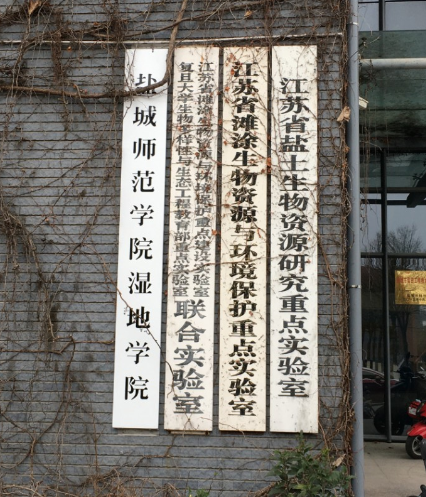 江苏省盐土生物资源研究重点实验室
江苏省滩涂生物资源与环境保护重点实验室
江苏省滩涂生物资源与环境保护重点建设实验室
复旦大学生物多样性与生态工程教育部重点实验室
联合实验室
盐城师范学院湿地学院